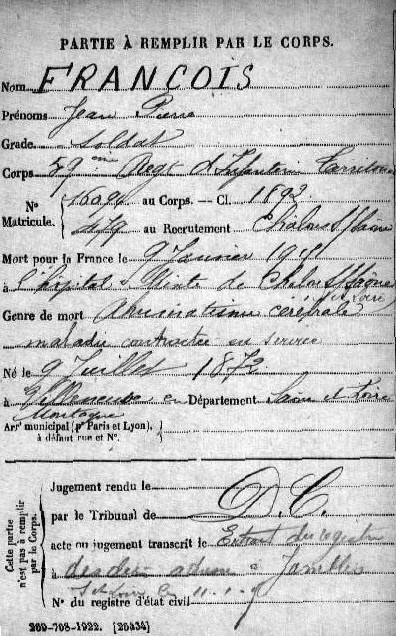 PARTIE À REMPLIR PAR LE CORPS.
Nom FRANÇOIS
Prénoms Jean Pierre
Grade Soldat
Corps 59eme Regt d'Infanterie Territoriale
N° Matricule. 16094 au Corps. — Cl. 1892
479 au Recrutement Châlon s/Saône
Mort pour la France le 9 Janvier 1915
à l'hôpital Mixte de Châlon s/Saône
Genre de mort Rhumatisme cérébral
maladie contractée en service
Né le 9 Juillet 1872
à en Département Saône et Loire
Montagne
Arrt municipal (pr Paris et Lyon),
à défaut rue et N°.
Cette partie n'est pas à remplir par le Corps.
Jugement rendu le
par le Tribunal de D.C.
acte ou jugement transcrit le Extrait du registre
à des décès Jambles
N° du registre d'état civil
209-708-1922. [26434]